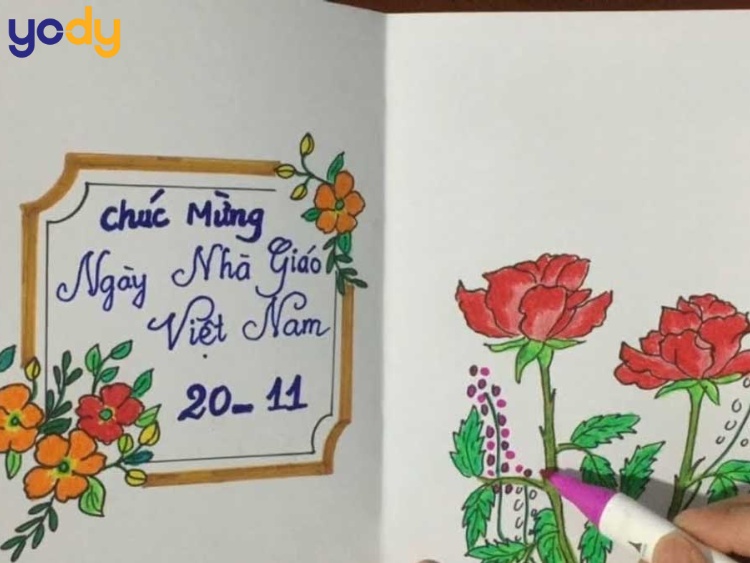 yody
Chúc Mừng
Ngày Nhà Giáo
Việt Nam
20_ 11